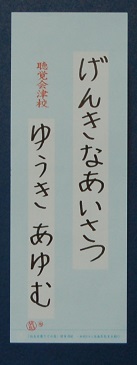 げんきなあいさつ
聴覚会津校
ゆうき あゆむ